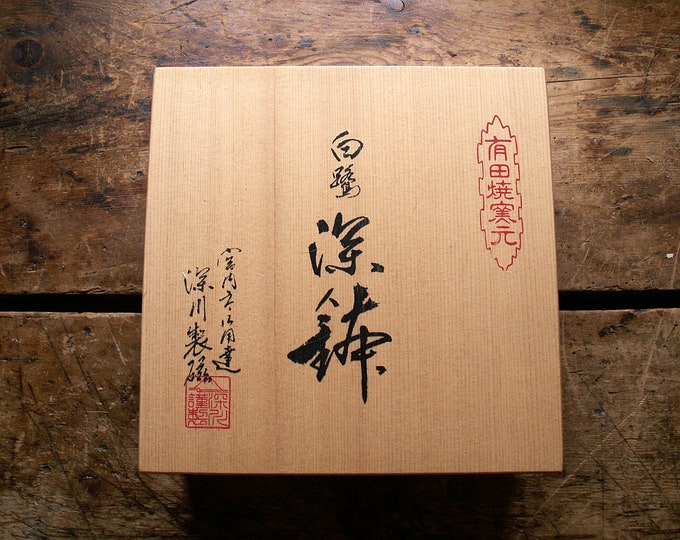 有田焼窯元
白鷺
深鉢
宮内庁御用達
深川製磁
深川
謹製